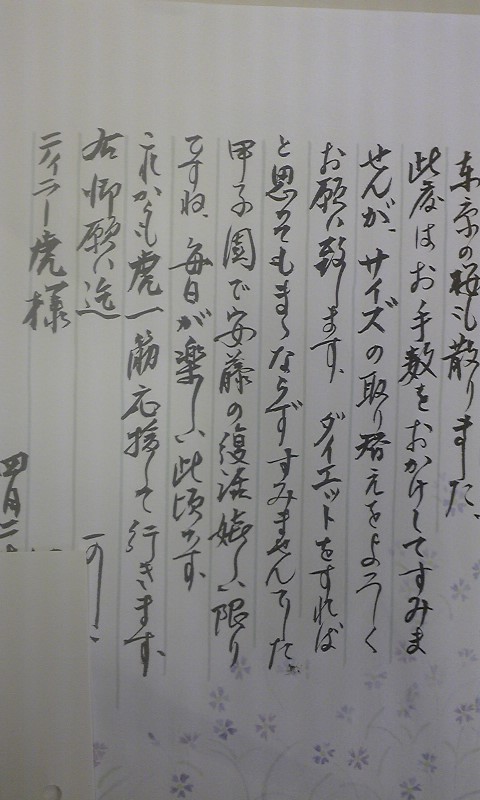 東京の桜も散りました。
此度はお手数をおかけしてすみま
せんが、サイズの取り替えをよろしく
お願い致します。ダイエットをすれば
と思ってもまゝならずすみませんでした。
甲子園で安藤の復活嬉しい限り
ですね、毎日が楽しい此頃です、
これからも虎一筋応援して行きます、
右御願い迄
ティラー虎様
四月二